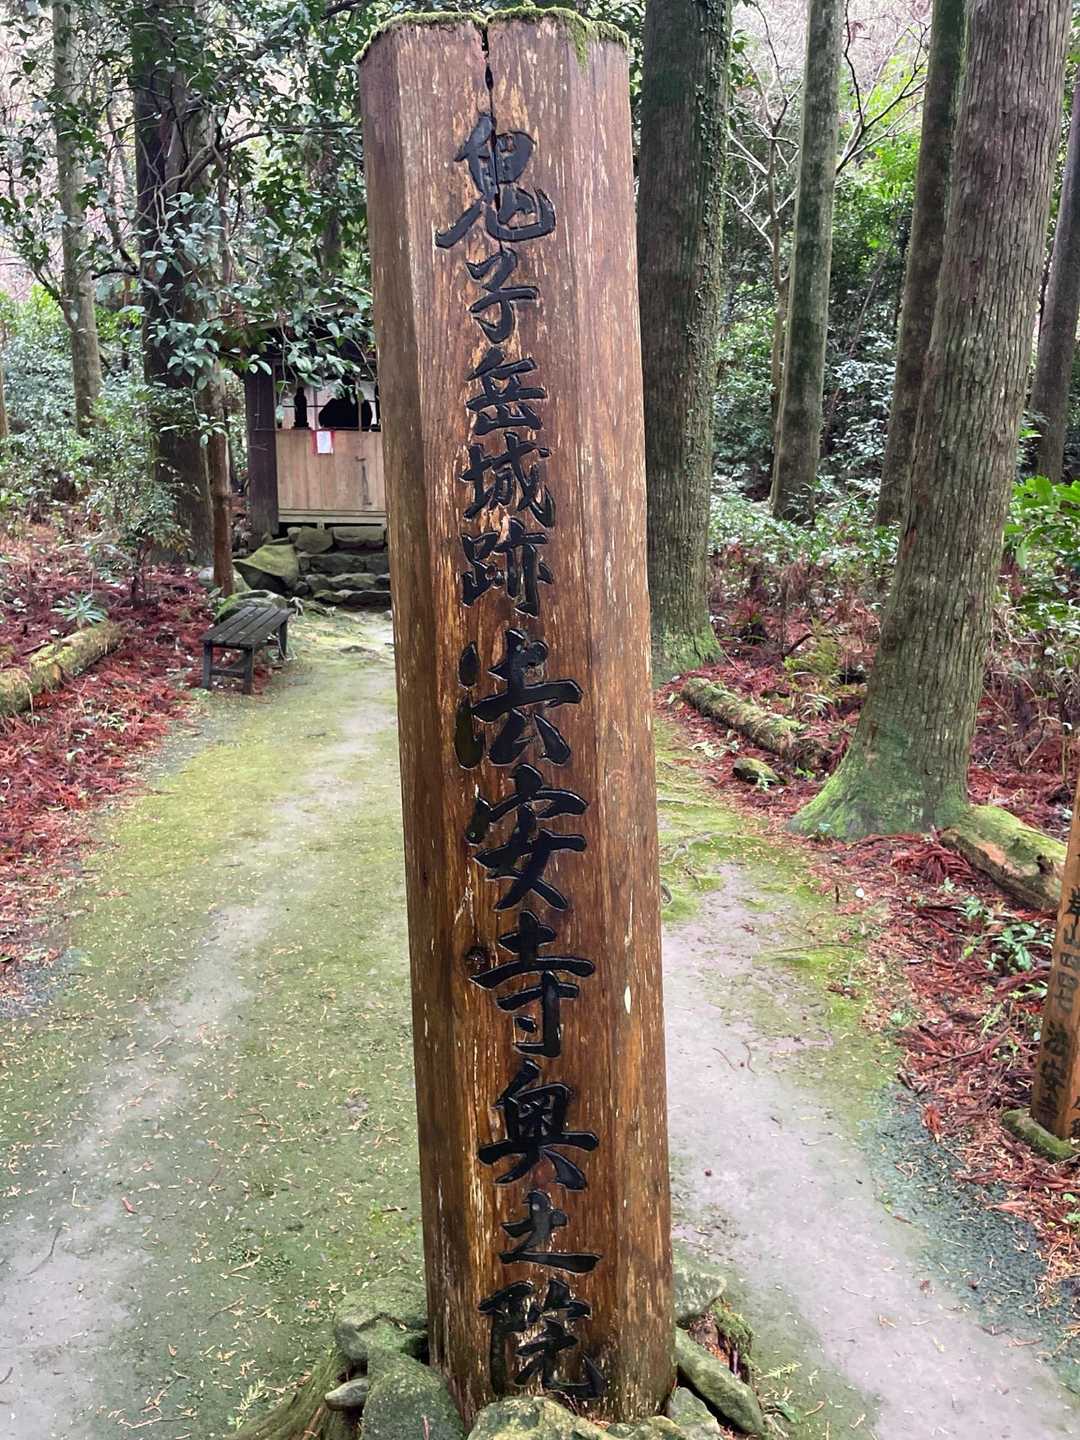 鬼子岳城跡法安寺奥之院
法安寺